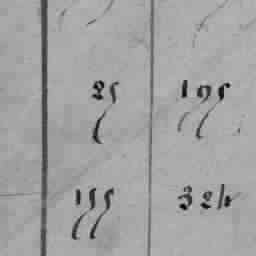 25 195
155 324